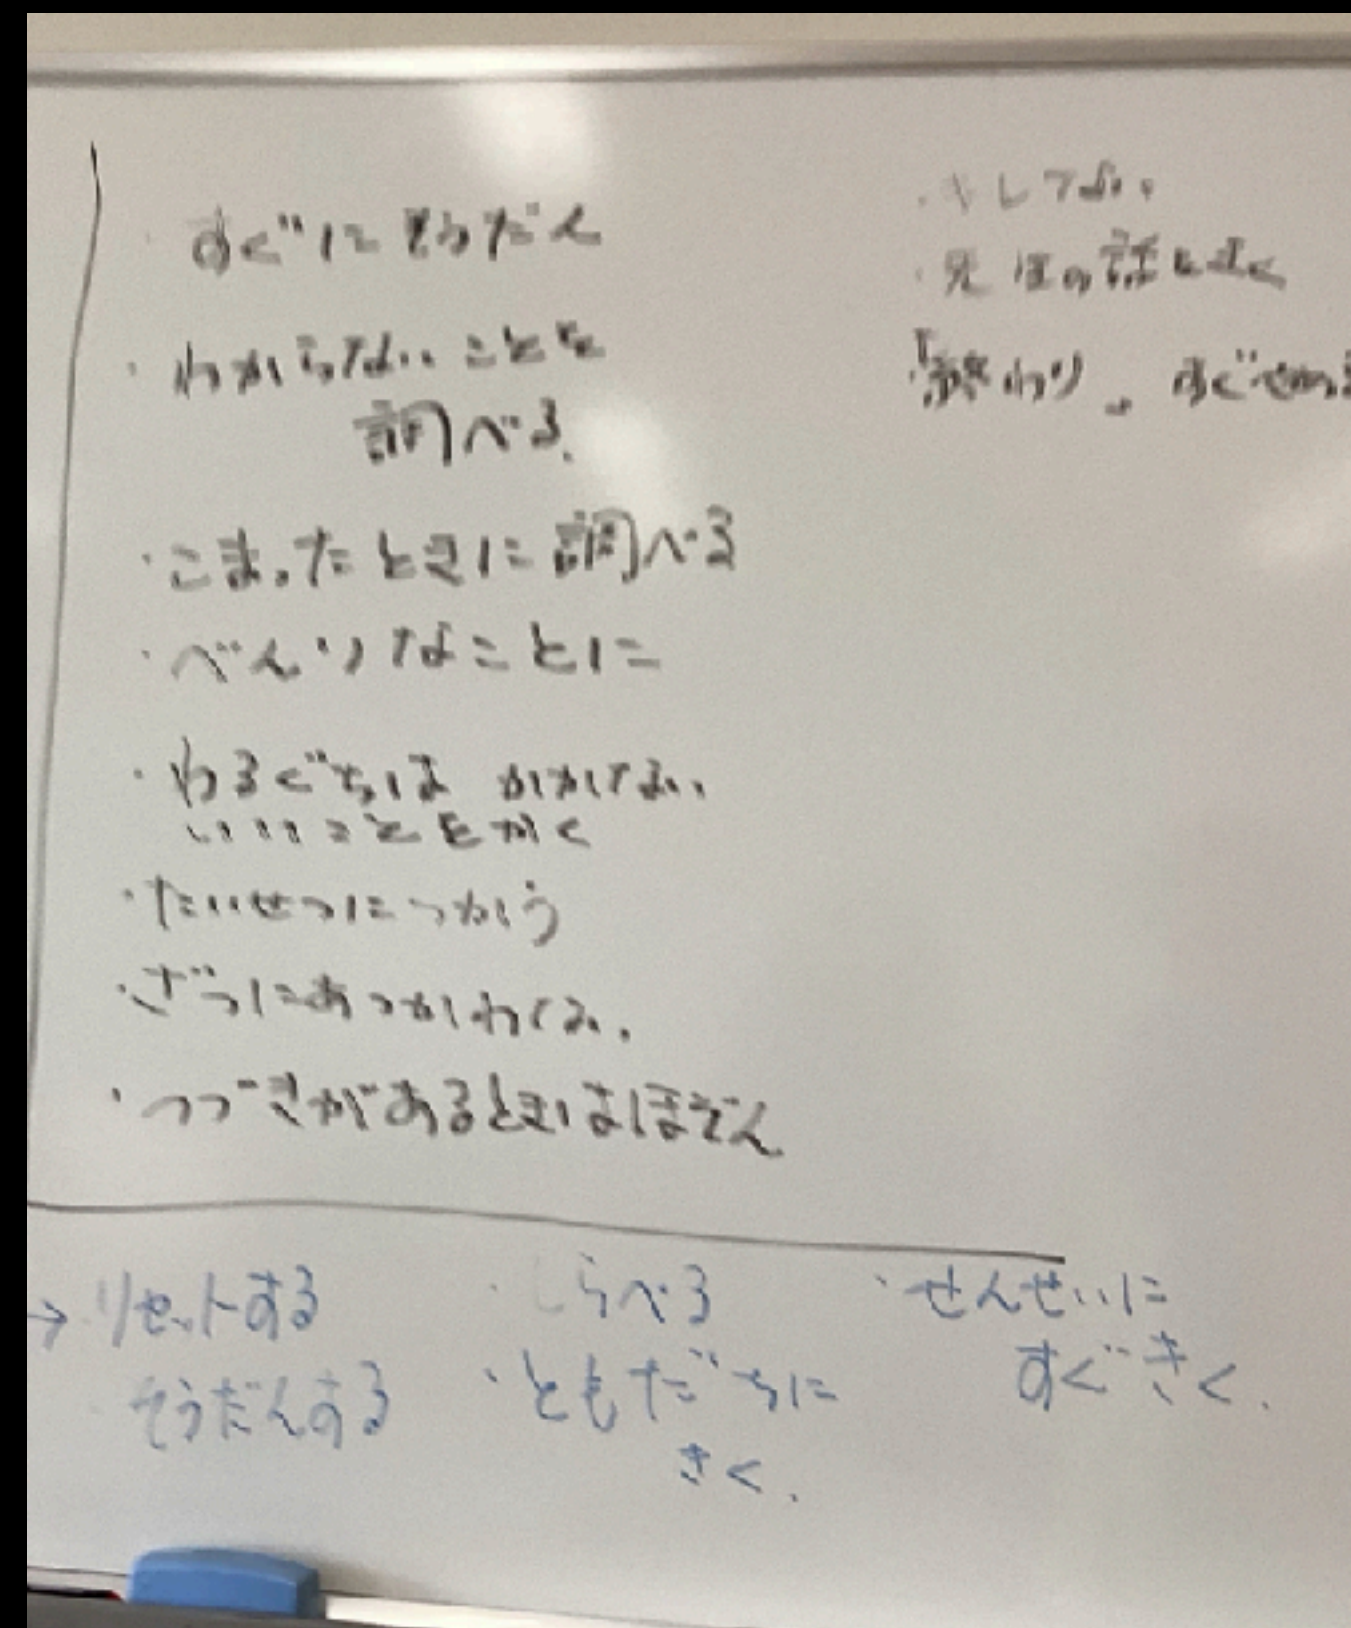 ・すぐにそうだん
・わからないことを
調べる.
・こまったときに調べる
・べんりなことに
・わるぐちは かかない
いいことをかく
・たいせつにつかう
・ざつにあつかわない.
・つづきがあるときはほぞん
の話をきく
「終わり」 すぐ
→ リセットする
そうだんする
・しらべる
・ともだちに
きく.
・せんせいに
すぐきく.